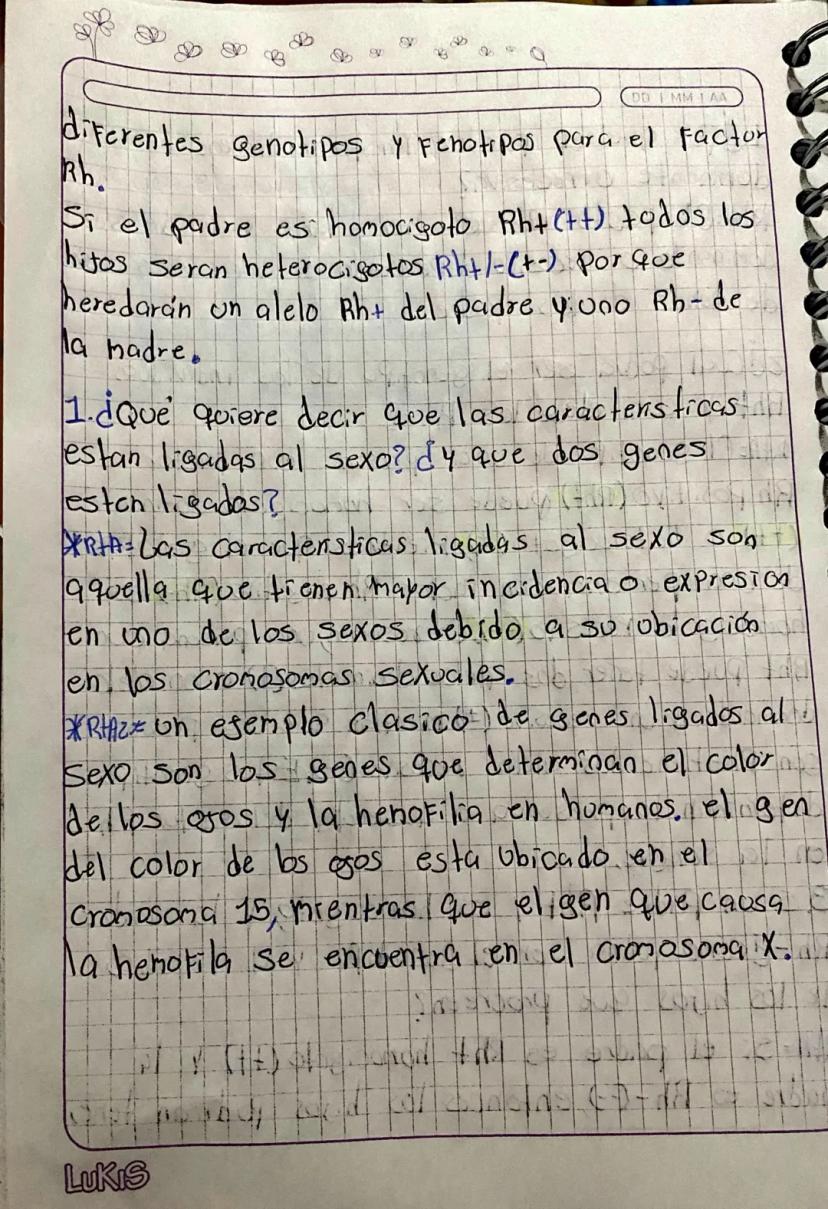 DD | MM | AA
diferentes genotipos y Fenotipos para el Factor
Rh.
Si el padre es homocigoto Rh+(++) todos los
hijos seran heterocigotos Rh+/-(+-) porque
heredarán un alelo Rh+ del padre y uno Rh- de
la madre.
1. ¿Qué quiere decir que las características
estan ligadas al sexo? ¿y que dos genes
esten ligados?
*RtA= Las características ligadas al sexo son
aquella que tienen mayor incidencia o expresion
en uno de los sexos debido a su ubicación
en los cromosomas sexuales.
*RtA2= Un ejemplo clasico de genes ligados al
sexo son los genes que determinan el color
de los ojos y la hemofilia en humanos. el gen
del color de los ojos esta ubicado en el
cromosoma 15, mientras que el gen que causa
la hemofila se encuentra en el cromosoma X.
LUKIS